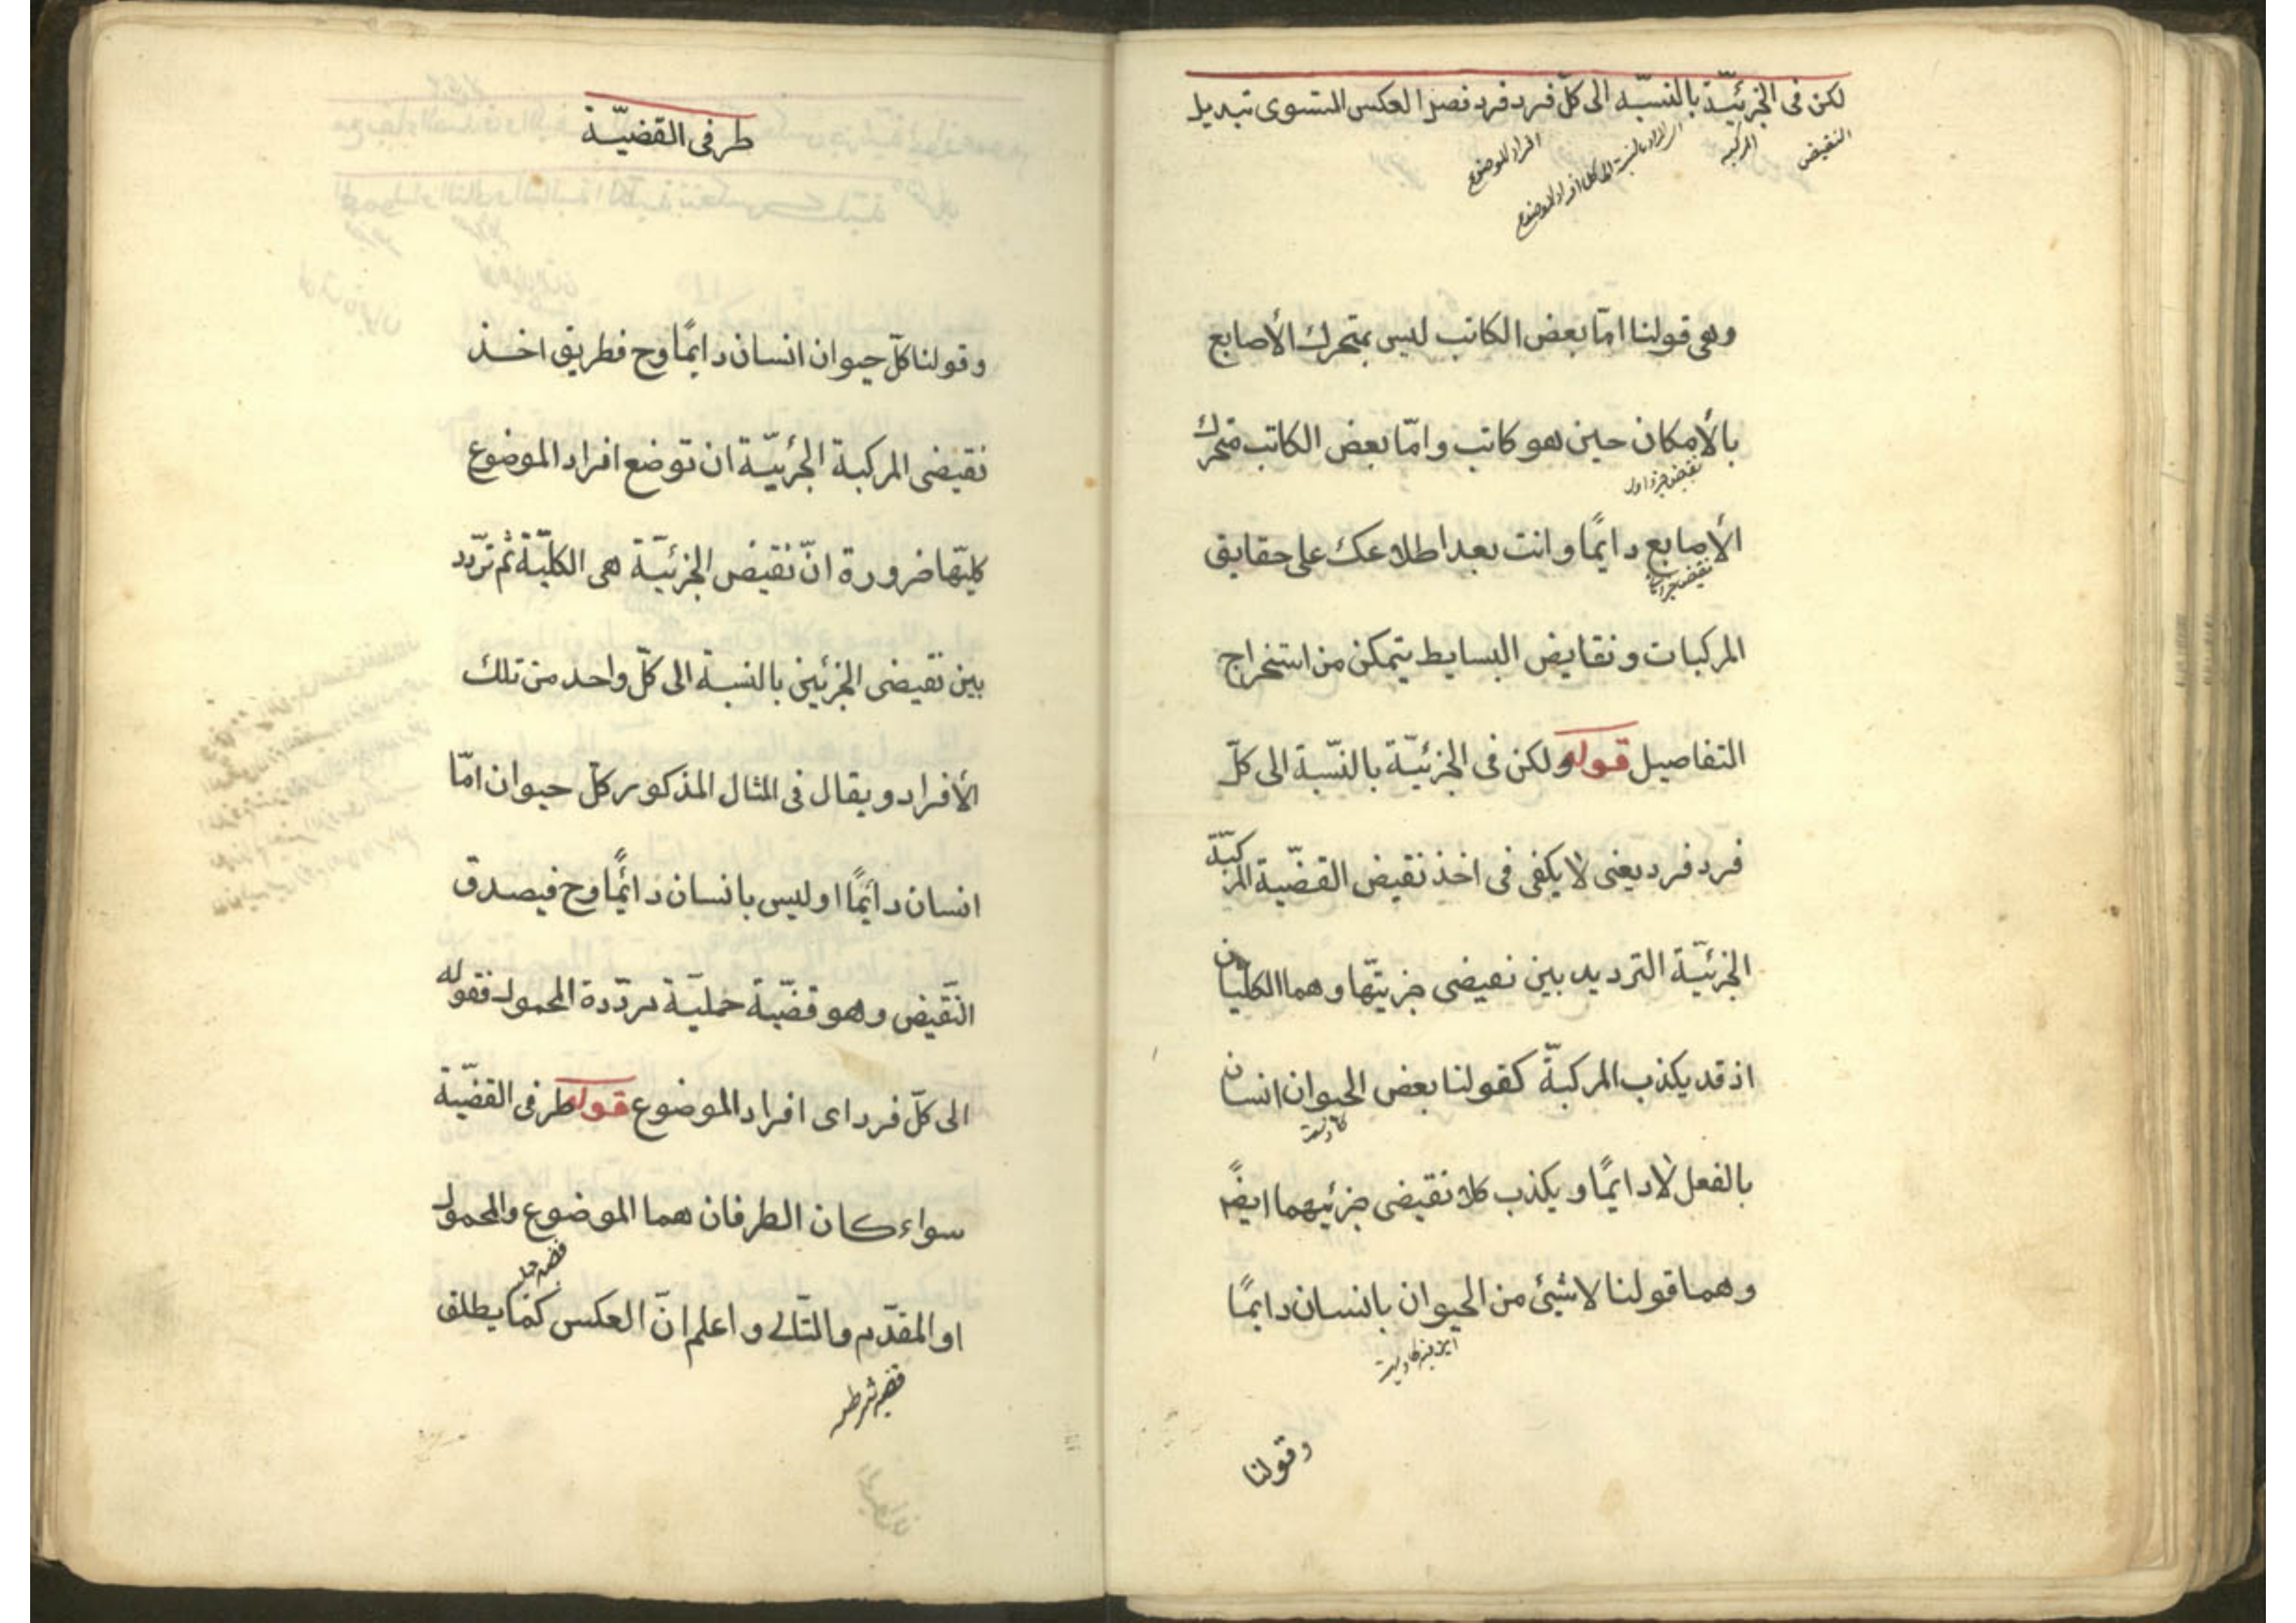 لكن فى الجزئيّة بالنسبة الى كلّ فرد فرد فصل العكس المستوى تبديل
النقيض
المركبه
افراد الموضوع
وهى قولنا امّا بعض الكاتب ليس بمتحرك الأصابع
بالأمكان حين هو كاتب وامّا بعض الكاتب متحرك
نقيض جزء اول
الأصابع دايمًا وانت بعد اطلاعك على حقايق
المركبات ونقايض البسايط يتمكن من استخراج
التفاصيل قوله ولكن فى الجزئيّة بالنّسبة الى كلّ
فرد فرد يعنى لا يكفى فى اخذ نقيض القضيّة المركبّة
الجزئيّة الترديد بين نقيضى جزئيّها وهما الكليتان
اذ قد يكذب المركبةّ كقولنا بعض الحيوان انسان
كاذبست
بالفعل لا دايمًا ويكذب كلا نقيضى جزئيهما ايضًا
وهما قولنا لا شيئ من الحيوان بانسان دايمًا
اين نيز كاذبست
وقولنا
طرفى القضيّة
وقولنا كلّ حيوان انسان دايمًا وح فطريق اخذ
نقيضى المركبة الجزئيّة ان توضع افراد الموضوع
كليّها ضرورة انّ نقيض الجزئيّة هى الكليّة ثم تردّد
بين نقيضى الجزئين بالنسبة الى كلّ واحد من تلك
الأفراد ويقال فى المثال المذكور كلّ حيوان امّا
انسان دائمًا او ليس بانسان دائمًا وح فيصدق
النّقيض وهو قضيّة حمليّة مردّدة المحمول فقوله
الى كلّ فرد اى افراد الموضوع قوله طرفى القضيّة
سواء كان الطرفان هما الموضوع والمحمول
قضيه حمليه
او المقدّم والتّالى واعلم انّ العكس كما يطلق
قضيه شرطيه